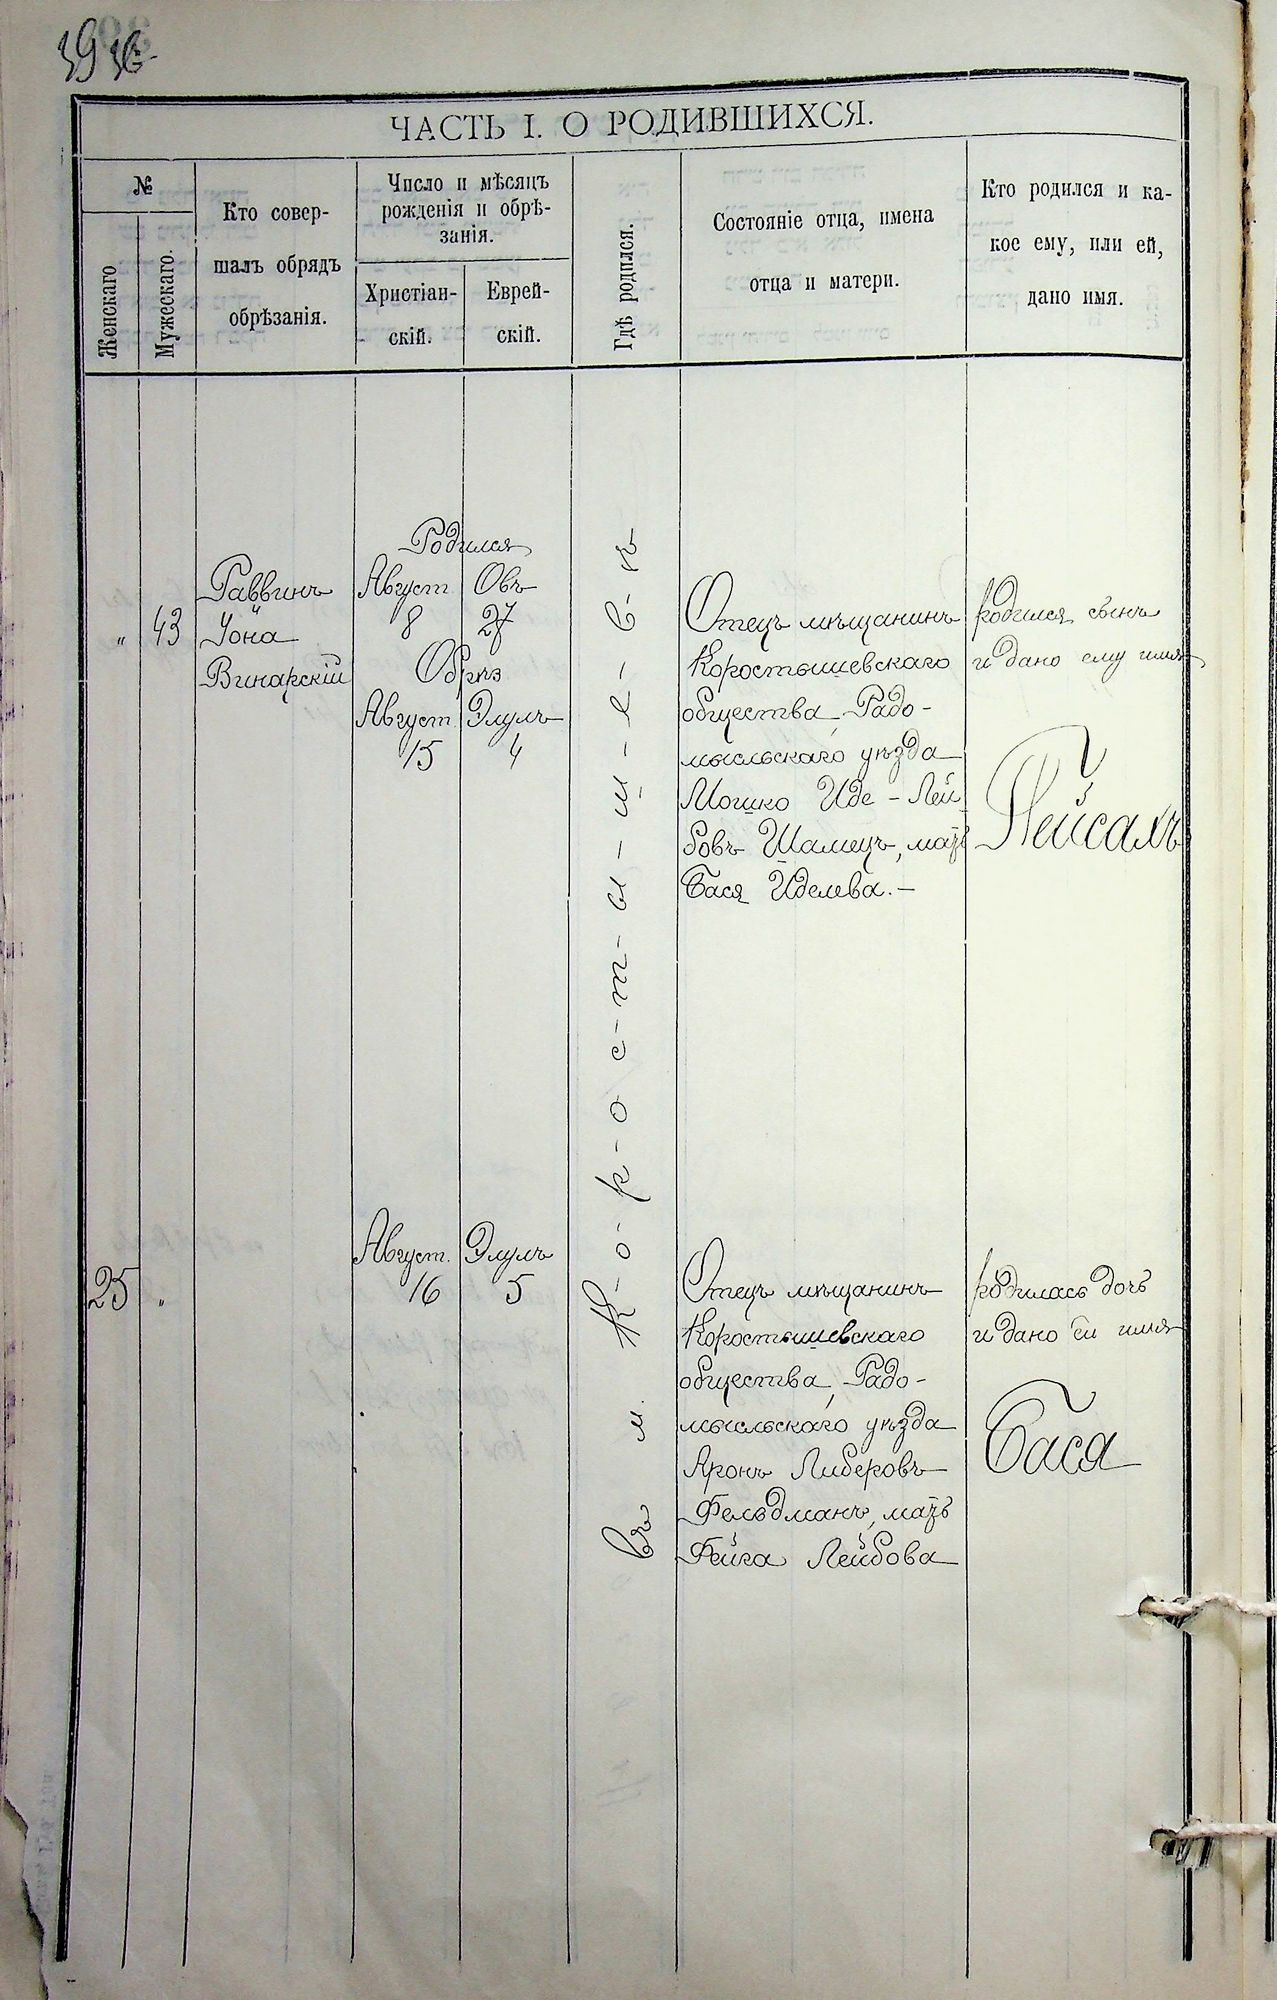 ЧАСТЬ I. О РОДИВШИХСЯ.
№
Женскаго
Мужескаго.
Кто совер-
шалъ обрядъ
обрѣзанія.
Число и мѣсяцъ
рожденія и обрѣ-
занія.
Христіан-
скій.
Еврей-
скій.
Гдѣ родился.
Состояніе отца, имена
отца и матери.
Кто родился и ка-
кое ему, или ей,
дано имя.
" 43
Раввинъ
Іона
Винарскій
Родился
Август Овъ
8 27
Обрѣз
Август Элулъ
15 4
Въ м. К-о-р-о-с-т-ы-ш-е-в-ѣ
Отецъ мѣщанинъ
Коростышевскаго
общества, Радо-
мысльскаго уѣзда
Мошко Иде-Лей
бовъ Шамецъ, мать
Бася Иделева.-
родился сынъ
и дано ему имя
Пейсахъ
25 "
Август. Элулъ
16 5
Отецъ мѣщанинъ
Коростышевскаго
общества, Радо-
мысльскаго уѣзда
Аронъ Либеровъ
Фельдманъ, мать
Фейга Лейбова
родилась дочь
и дано ей имя
Бася